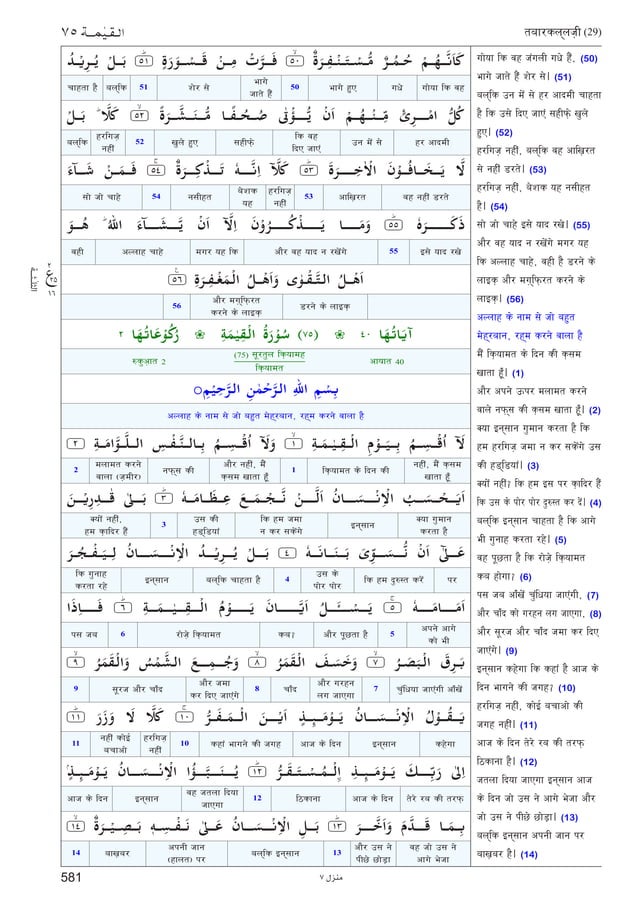 القيٰمة ٧٥
तबारकल्लज़ी (29)
كَاَنَّهُمْ حُمُرٌ مُّسْتَنْفِرَةٌ ۝٥٠ فَرَّتْ مِنْ قَسْوَرَةٍ ۝٥١ بَلْ يُرِيْدُ
गोया कि वह
गधे
भागे हुए
50
भागे जाते हैं
शेर से
51
बल्कि
चाहता है
كُلُّ امْرِئٍ مِّنْهُمْ اَنْ يُّؤْتٰى صُحُفًا مُّنَشَّرَةً ۝٥٢ كَلَّا ؕ بَلْ
हर आदमी
उन में से
कि वह दिए जाएं
सहीफ़े
खुले हुए
52
हरगिज़ नहीं
बल्कि
لَّا يَخَافُوْنَ الْاٰخِرَةَ ۝٥٣ كَلَّآ اِنَّهٗ تَذْكِرَةٌ ۝٥٤ فَمَنْ شَآءَ
वह नहीं डरते
आख़िरत
53
हरगिज़ नहीं
बेशक यह
नसीहत
54
सो जो चाहे
ذَكَرَهٗ ۝٥٥ وَمَا يَذْكُرُوْنَ اِلَّآ اَنْ يَّشَآءَ اللّٰهُ ؕ هُوَ
इसे याद रखे
55
और वह याद न रखेंगे
मगर यह कि
अल्लाह चाहे
वही
اَهْلُ التَّقْوٰى وَاَهْلُ الْمَغْفِرَةِ ۝٥٦
डरने के लाइक़
और मग़्फ़िरत करने के लाइक़
56
اٰيَاتُهَا ٤٠ ❀ (٧٥) سُوْرَةُ الْقِيٰمَةِ ❀ رُكُوْعَاتُهَا ٢
आयात 40
(75) सूरतुल क़ियामह
क़ियामत
रुकुआत 2
بِسْمِ اللّٰهِ الرَّحْمٰنِ الرَّحِيْمِ ○
अल्लाह के नाम से जो बहुत मेहरबान, रहम करने वाला है
لَآ اُقْسِمُ بِيَوْمِ الْقِيٰمَةِ ۝١ وَلَآ اُقْسِمُ بِالنَّفْسِ اللَّوَّامَةِ ۝٢
नहीं, मैं क़सम खाता हूँ
क़ियामत के दिन की
1
और नहीं, मैं क़सम खाता हूँ
नफ़्स की
मलामत करने वाला (ज़मीर)
2
اَيَحْسَبُ الْاِنْسَانُ اَلَّنْ نَّجْمَعَ عِظَامَهٗ ۝٣ بَلٰى قٰدِرِيْنَ
क्या गुमान करता है
इन्सान
कि हम जमा न कर सकेंगे
उस की हड्डियां
3
क्यों नहीं, हम क़ादिर हैं
عَلٰٓى اَنْ نُّسَوِّيَ بَنَانَهٗ ۝٤ بَلْ يُرِيْدُ الْاِنْسَانُ لِيَفْجُرَ
पर
कि हम दुरुस्त करें
उस के पोर पोर
4
बल्कि चाहता है
इन्सान
कि गुनाह करता रहे
اَمَامَهٗ ۝٥ يَسْئَلُ اَيَّانَ يَوْمُ الْقِيٰمَةِ ۝٦ فَاِذَا
अपने आगे को भी
5
और पूछता है
कब?
रोज़े क़ियामत
6
पस जब
بَرِقَ الْبَصَرُ ۝٧ وَخَسَفَ الْقَمَرُ ۝٨ وَجُمِعَ الشَّمْسُ وَالْقَمَرُ ۝٩
चुंधिया जाएंगी आँखें
7
और गरहन लग जाएगा
चाँद
8
और जमा कर दिए जाएंगे
सूरज और चाँद
9
يَقُوْلُ الْاِنْسَانُ يَوْمَئِذٍ اَيْنَ الْمَفَرُّ ۝١٠ كَلَّا لَا وَزَرَ ۝١١
कहेगा
इन्सान
आज के दिन
कहां भागने की जगह
10
हरगिज़ नहीं
नहीं कोई बचाओ
11
اِلٰى رَبِّكَ يَوْمَئِذِ ࣙالْمُسْتَقَرُّ ۝١٢ يُنَبَّؤُا الْاِنْسَانُ يَوْمَئِذٍۭ
तेरे रब की तरफ़
आज के दिन
ठिकाना
12
वह जतला दिया जाएगा
इन्सान
आज के दिन
بِمَا قَدَّمَ وَاَخَّرَ ۝١٣ بَلِ الْاِنْسَانُ عَلٰى نَفْسِهٖ بَصِيْرَةٌ ۝١٤
वह जो उस ने आगे भेजा
और उस ने पीछे छोड़ा
13
बल्कि इन्सान
अपनी जान (हालत) पर
बाख़बर
14
गोया कि वह जंगली गधे हैं, (50)
भागे जाते हैं शेर से। (51)
बल्कि उन में से हर आदमी चाहता
है कि उसे दिए जाएं सहीफ़े खुले
हुए। (52)
हरगिज़ नहीं, बल्कि वह आख़िरत
से नहीं डरते। (53)
हरगिज़ नहीं, बेशक यह नसीहत
है। (54)
सो जो चाहे इसे याद रखे। (55)
और वह याद न रखेंगे मगर यह
कि अल्लाह चाहे, वही है डरने के
लाइक़ और मग़्फ़िरत करने के
लाइक़। (56)
अल्लाह के नाम से जो बहुत
मेहरबान, रहम करने वाला है
मैं क़ियामत के दिन की क़सम
खाता हूँ। (1)
और अपने ऊपर मलामत करने
वाले नफ़्स की क़सम खाता हूँ। (2)
क्या इन्सान गुमान करता है कि
हम हरगिज़ जमा न कर सकेंगे उस
की हड्डियां। (3)
क्यों नहीं? कि हम इस पर क़ादिर हैं
कि उस के पोर पोर दुरुस्त कर दें। (4)
बल्कि इन्सान चाहता है कि आगे
भी गुनाह करता रहे। (5)
वह पूछता है कि रोज़े क़ियामत
कब होगा? (6)
पस जब आँखें चुंधिया जाएंगी, (7)
और चाँद को गरहन लग जाएगा, (8)
और सूरज और चाँद जमा कर दिए
जाएंगे। (9)
इन्सान कहेगा कि कहां है आज के
दिन भागने की जगह? (10)
हरगिज़ नहीं, कोई बचाओ की
जगह नहीं। (11)
आज के दिन तेरे रब की तरफ़
ठिकाना है। (12)
जतला दिया जाएगा इन्सान आज
के दिन जो उस ने आगे भेजा और
जो उस ने पीछे छोड़ा। (13)
बल्कि इन्सान अपनी जान पर
बाख़बर है। (14)
581
منزل ٧